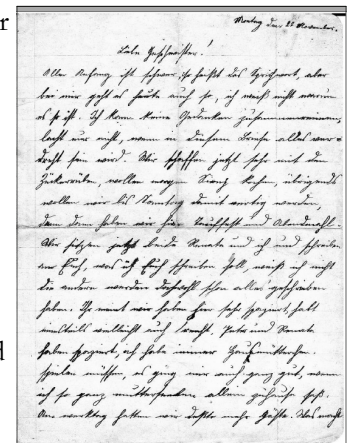 er
Montag den 25 November.
Liebe Geschwister!
Aller Anfang ist schwer. So heißt das Sprichwort, aber
bei mir geht es heute auch so, ich weiß nicht warum
es so ist. Ich kann keine Gedanken zusammennehmen,
lacht nur nicht, wenn in diesem Briefe alles ver-
dreht sein wird. Wir schaffen jetzt sehr mit den
Zuckerrüben, wollen morgen kochen, übrigends
wollen wir bis Sonntag damit fertig werden,
denn dann haben wir hier Tauffest und Abendmahl.
Wir sitzen jetzt beide Renate und ich und schreiben
an Euch, was ich Euch schreiben soll, weiß ich nicht
die andern werden doch wohl schon alles geschrieben
haben. Ihr meint wir haben hier sehr spaziert, habt
vielleicht auch recht. Peter und Renate
haben spaziert, ich habe immer Hausmütterchen
spielen müssen, es ging mir auch ganz gut, wenn
ich so ganz mutterseelen allein zuhause saß.
Am hatten wir mehr Gäste. Das macht
d